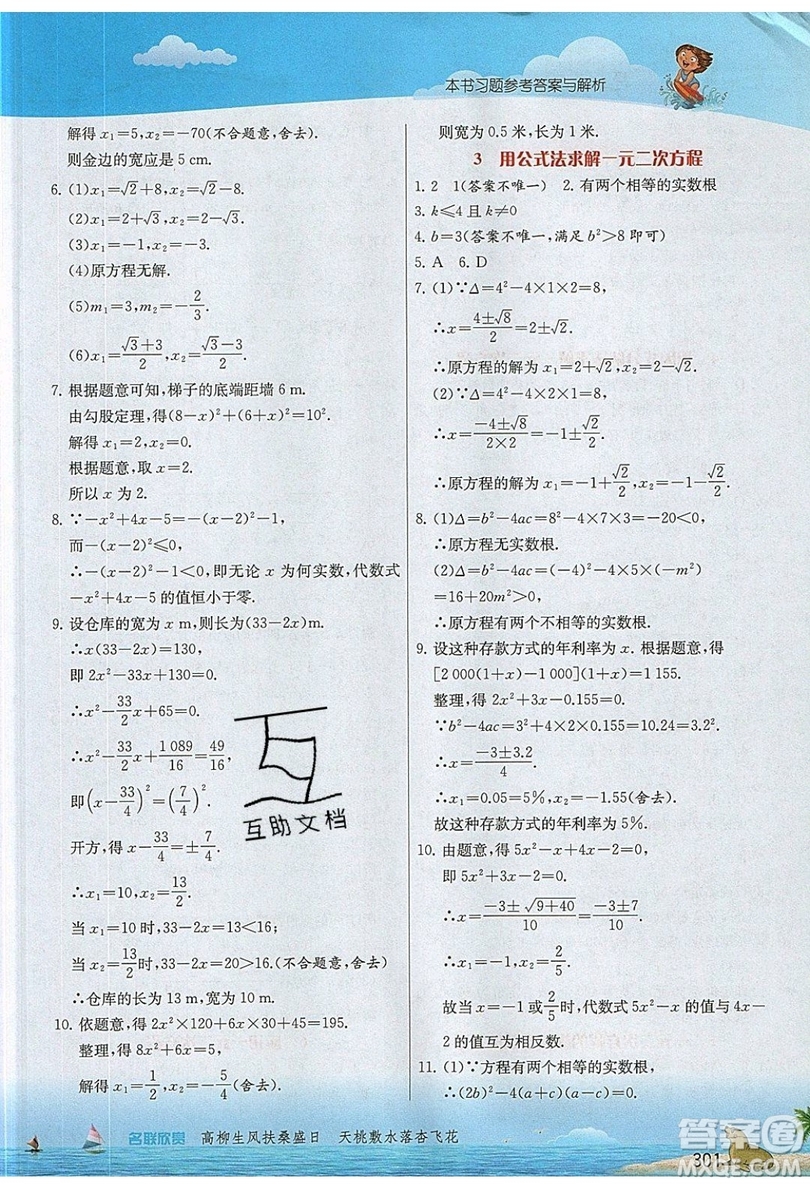 本书习题参考答案与解析
解得 x₁=5,x₂=-70(不合题意,舍去).
则金边的宽应是 5 cm.
6. (1)x₁=√2+8,x₂=√2-8.
(2)x₁=2+√3,x₂=2-√3.
(3)x₁=-1,x₂=-3.
(4)原方程无解.
(5)m₁=3,m₂=-2/3.
(6)x₁=(√3+3)/2,x₂=(√3-3)/2.
7. 根据题意可知,梯子的底端距墙 6 m.
由勾股定理,得(8-x)²+(6+x)²=10².
解得 x₁=2,x₂=0.
根据题意,取 x=2.
所以 x 为 2.
8. ∵-x²+4x-5=-(x-2)²-1,
而-(x-2)²≤0,
∴-(x-2)²-1<0,即无论 x 为何实数,代数式
-x²+4x-5 的值恒小于零.
9. 设仓库的宽为 x m,则长为(33-2x)m.
∴x(33-2x)=130,
即 2x²-33x+130=0.
∴x²-33/2x+65=0.
∴x²-33/2x+1 089/16=49/16,
即(x-33/4)²=(7/4)².
开方,得 x-33/4=±7/4.
∴x₁=10,x₂=13/2.
当 x₁=10 时,33-2x=13<16;
当 x₂=13/2时,33-2x=20>16.(不合题意,舍去)
∴仓库的长为 13 m,宽为 10 m.
10. 依题意,得 2x²×120+6x×30+45=195.
整理,得 8x²+6x=5,
解得 x₁=1/2,x₂=-5/4(舍去)
则宽为 0.5 米,长为 1 米.
3 用公式法求解一元二次方程
1. 2 1(答案不唯一) 2. 有两个相等的实数根
3. k≤4 且 k≠0
4. b=3(答案不唯一,满足 b²>8 即可)
5. A 6. D
7. (1)∵Δ=4²-4×1×2=8,
∴x=(4±√8)/2=2±√2.
∴原方程的解为 x₁=2+√2,x₂=2-√2.
(2)∵Δ=4²-4×2×1=8,
∴x=(-4±√8)/(2×2)=-1±√2/2.
∴原方程的解为 x₁=-1+√2/2,x₂=-1-√2/2.
8. (1)Δ=b²-4ac=8²-4×7×3=-20<0,
∴原方程无实数根.
(2)Δ=b²-4ac=4²-4×5×(-m²)
=16+20m²>0,
∴原方程有两个不相等的实数根.
9. 设这种存款方式的年利率为 x. 根据题意,得
[2 000(1+x)-1 000](1+x)=1 155.
整理,得 2x²+3x-0.155=0.
∵b²-4ac=3²+4×2×0.155=10.24=3.2²,
∴x=(-3±3.2)/4.
∴x₁=0.05=5%,x₂=-1.55(舍去).
故这种存款方式的年利率为 5%.
10. 由题意,得 5x²-x+4x-2=0,
即 5x²+3x-2=0.
∴x=(-3±√(9+40))/10=(-3±7)/10.
∴x₁=-1,x₂=2/5.
故当 x=-1 或2/5时,代数式 5x²-x 的值与 4x-
2 的值互为相反数.
11. (1)∵方程有两个相等的实数根,
∴(2b)²-4(a+c)(a-c)=0,
互助文档
名联欣赏 高柳生风扶桑盛日 天桃数水落杏飞花
301
答案圈
MXQE.COM